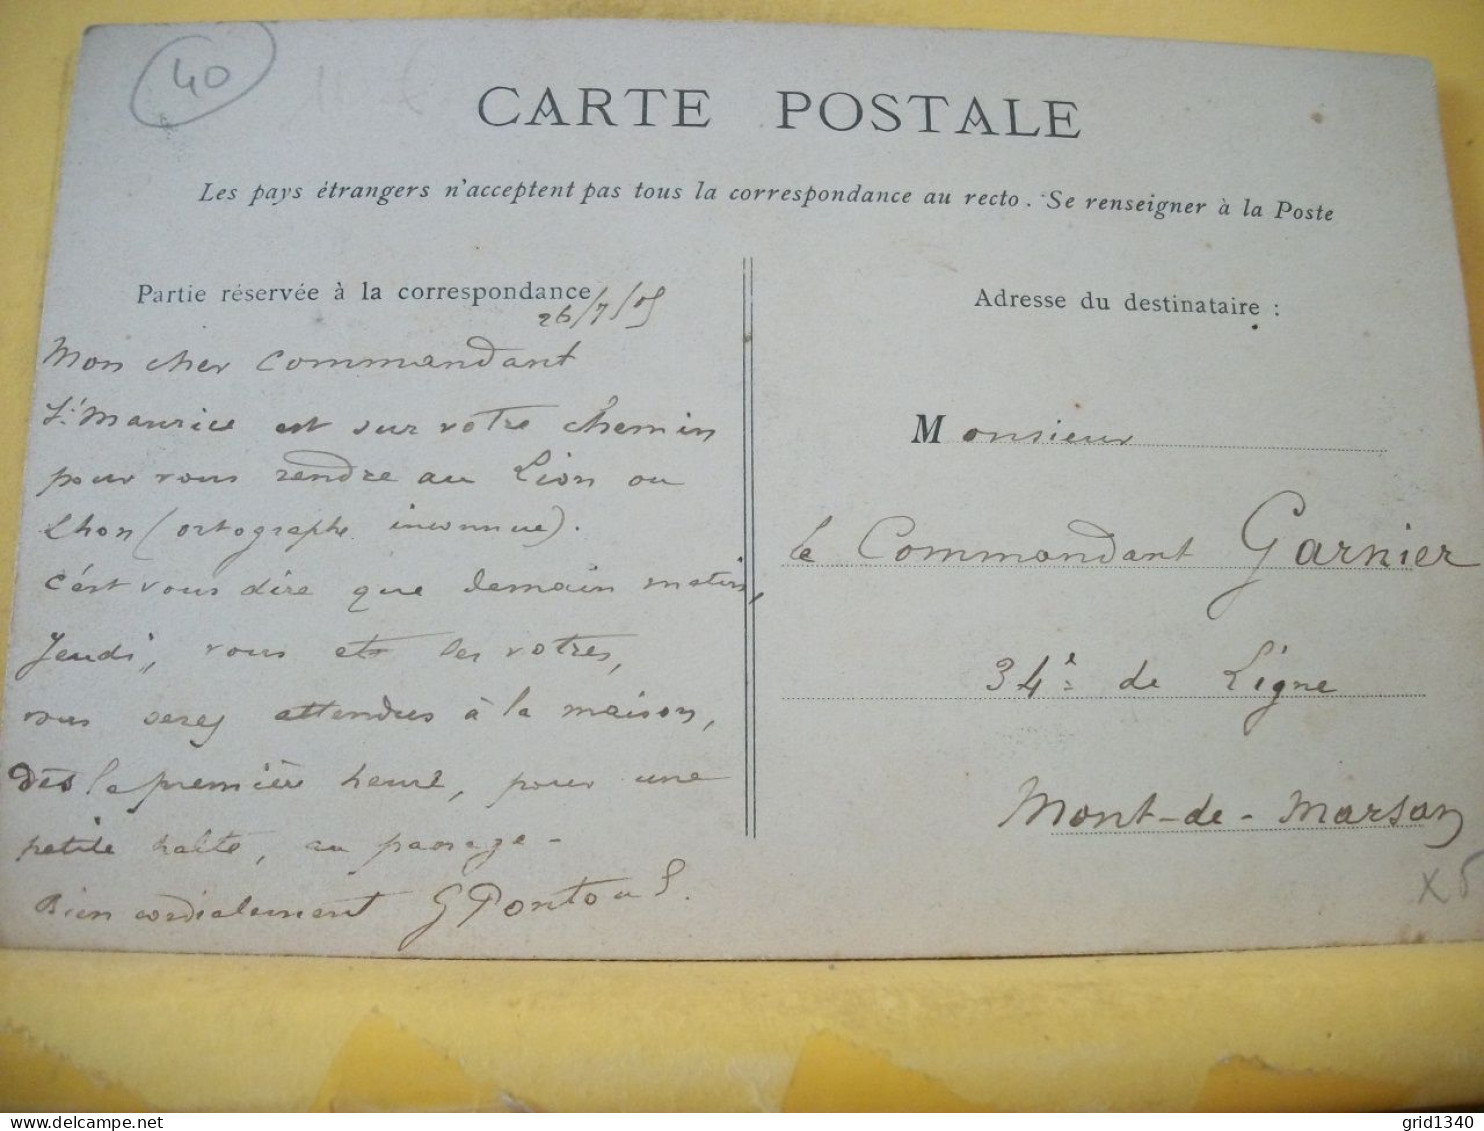 40
CARTE POSTALE
Les pays étrangers n'acceptent pas tous la correspondance au recto. Se renseigner à la Poste
Partie réservée à la correspondance
26/7/05
Mon cher Commandant
St Maurice est sur votre chemin
pour vous rendre au Lion ou
Lhon (ortographe inconnue).
c'est vous dire que demain matin,
Jeudi, vous et les votres,
vous serez attendus à la maison,
dès la première heure, pour une
petite halte, au passage -
Bien cordialement G Pontous.
Adresse du destinataire :
Monsieur
le Commandant Garnier
34e de Ligne
Mont-de-Marsan
x5
grid1340